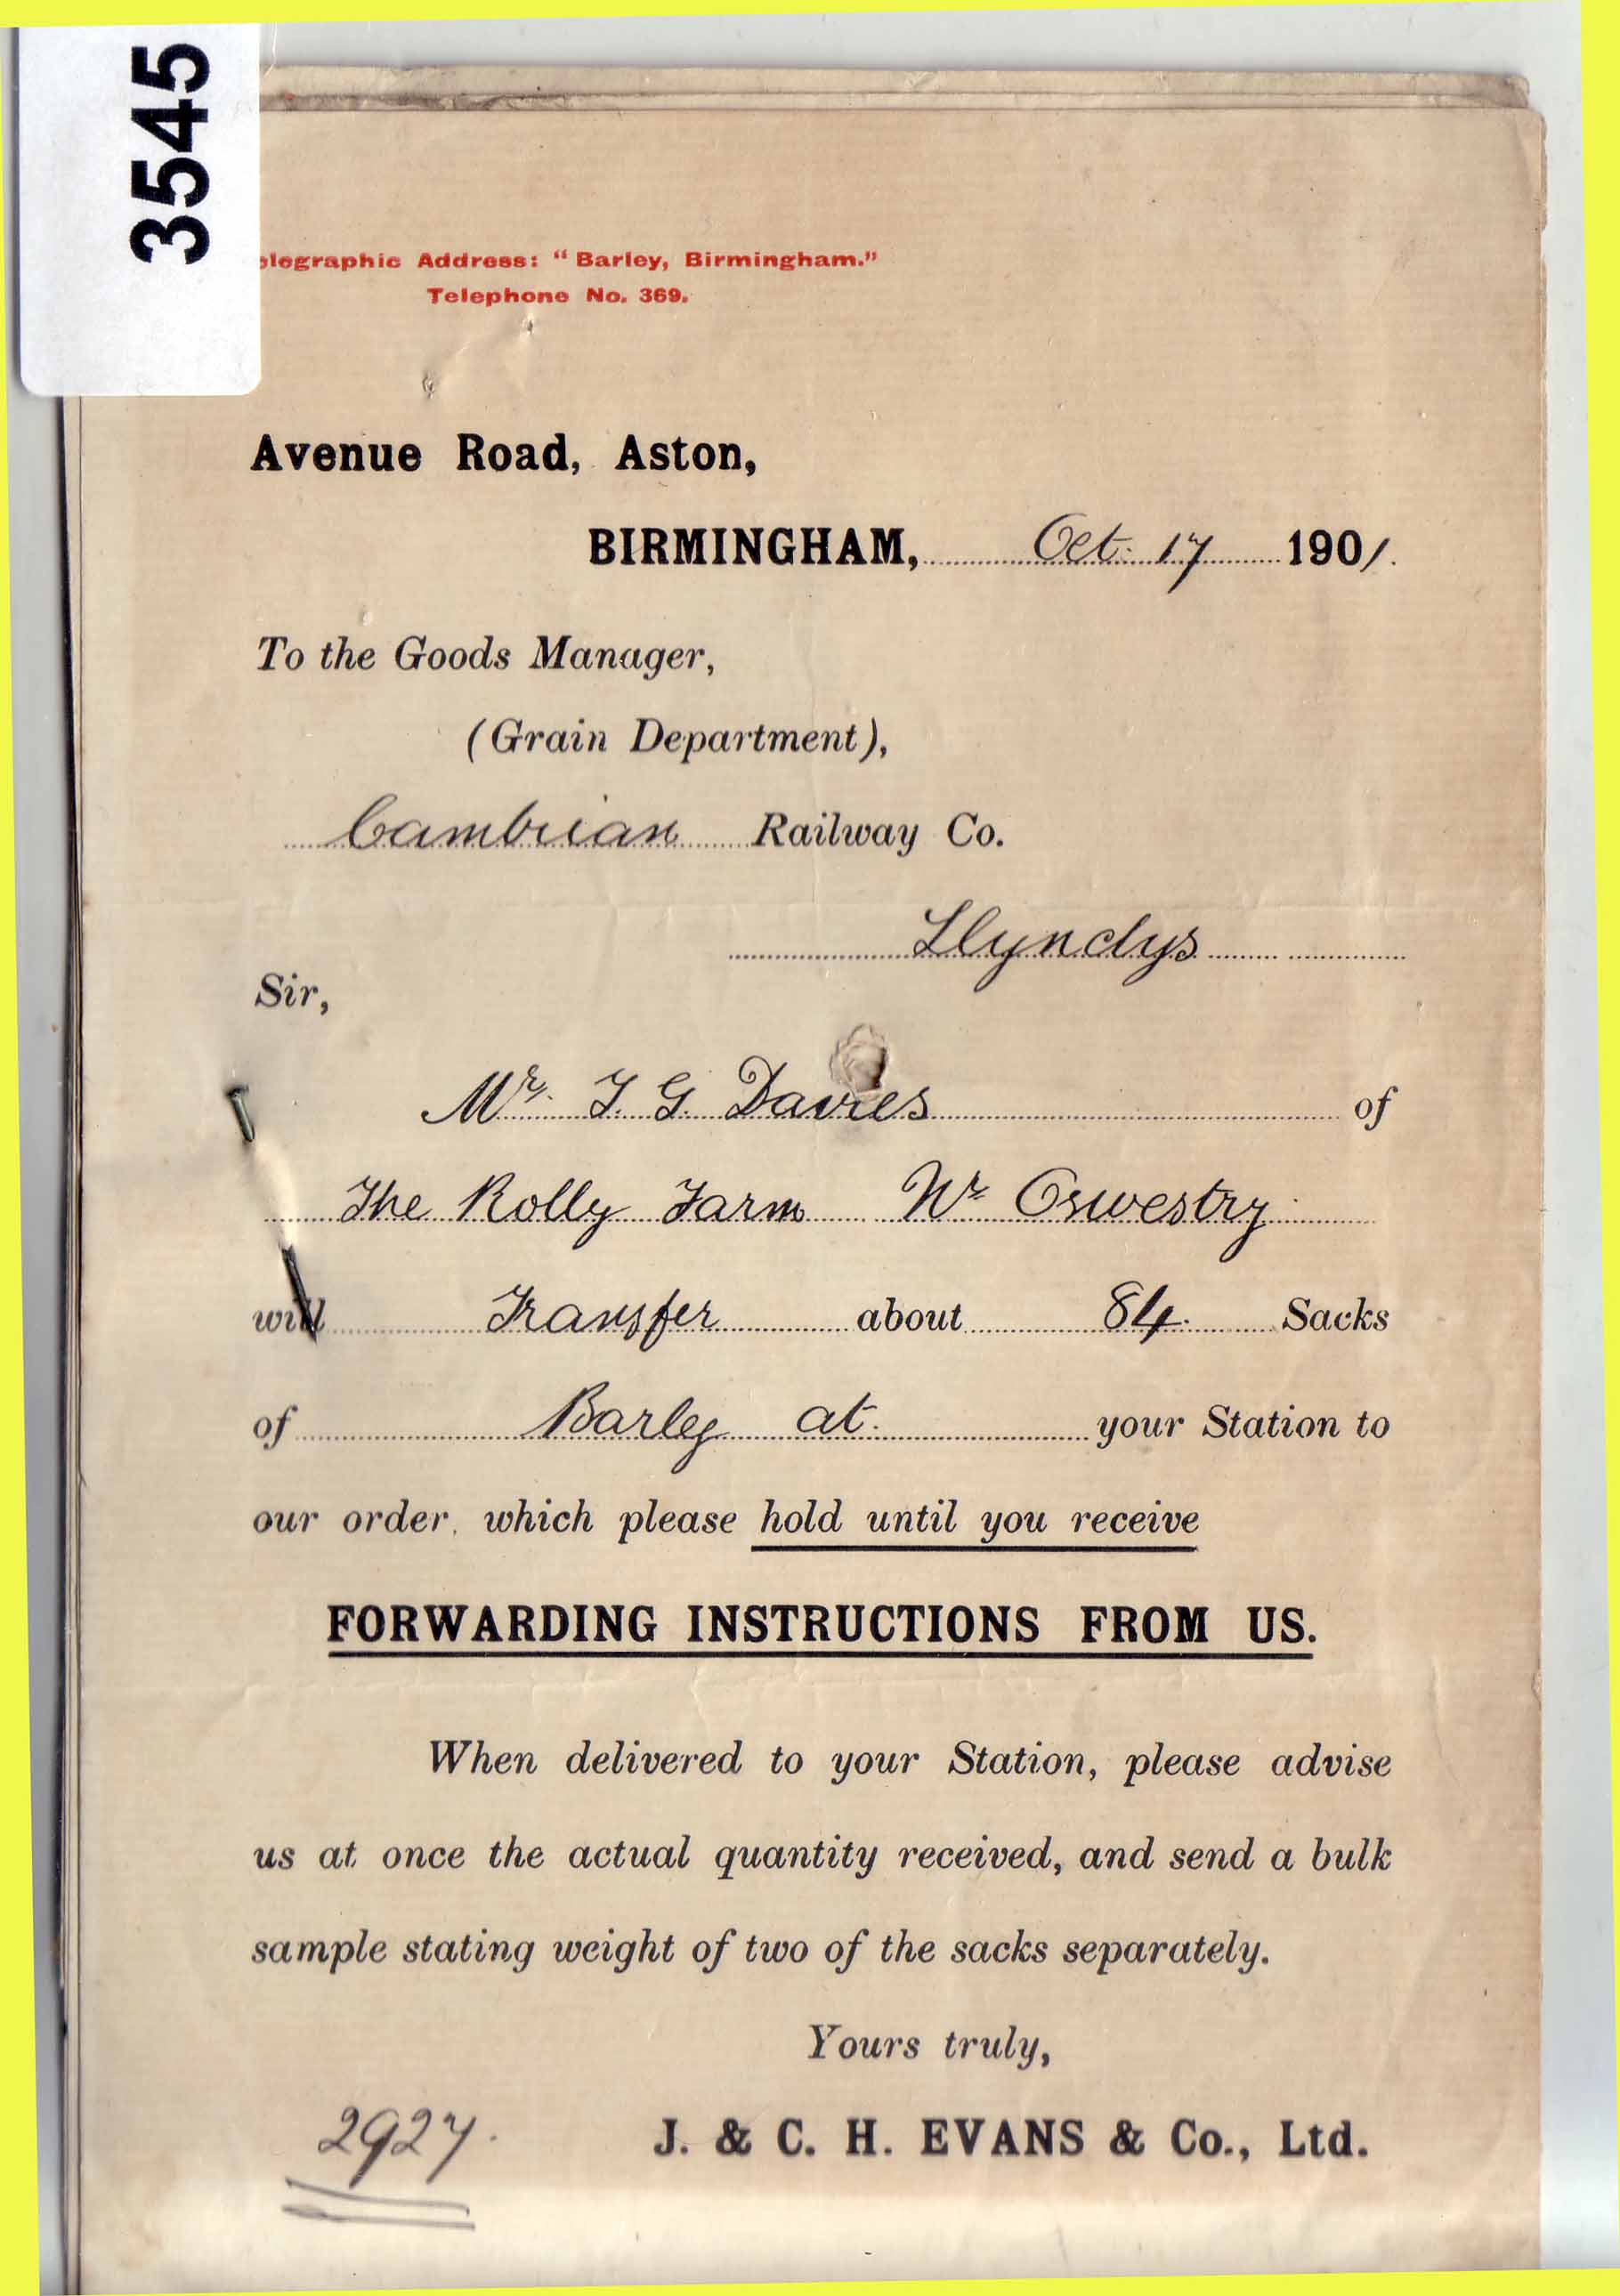 3545
elegraphic Address: "Barley, Birmingham."
Telephone No. 369.
Avenue Road, Aston,
BIRMINGHAM, Oct. 17 1901.
To the Goods Manager,
(Grain Department),
Cambrian Railway Co.
Llynclys
Sir,
Mr. T. G. Davies of
The Rolly Farm Nr Oswestry
will Transfer about 84 Sacks
of Barley at your Station to
our order, which please hold until you receive
FORWARDING INSTRUCTIONS FROM US.
When delivered to your Station, please advise
us at once the actual quantity received, and send a bulk
sample stating weight of two of the sacks separately.
Yours truly,
2927.
J. & C. H. EVANS & Co., Ltd.